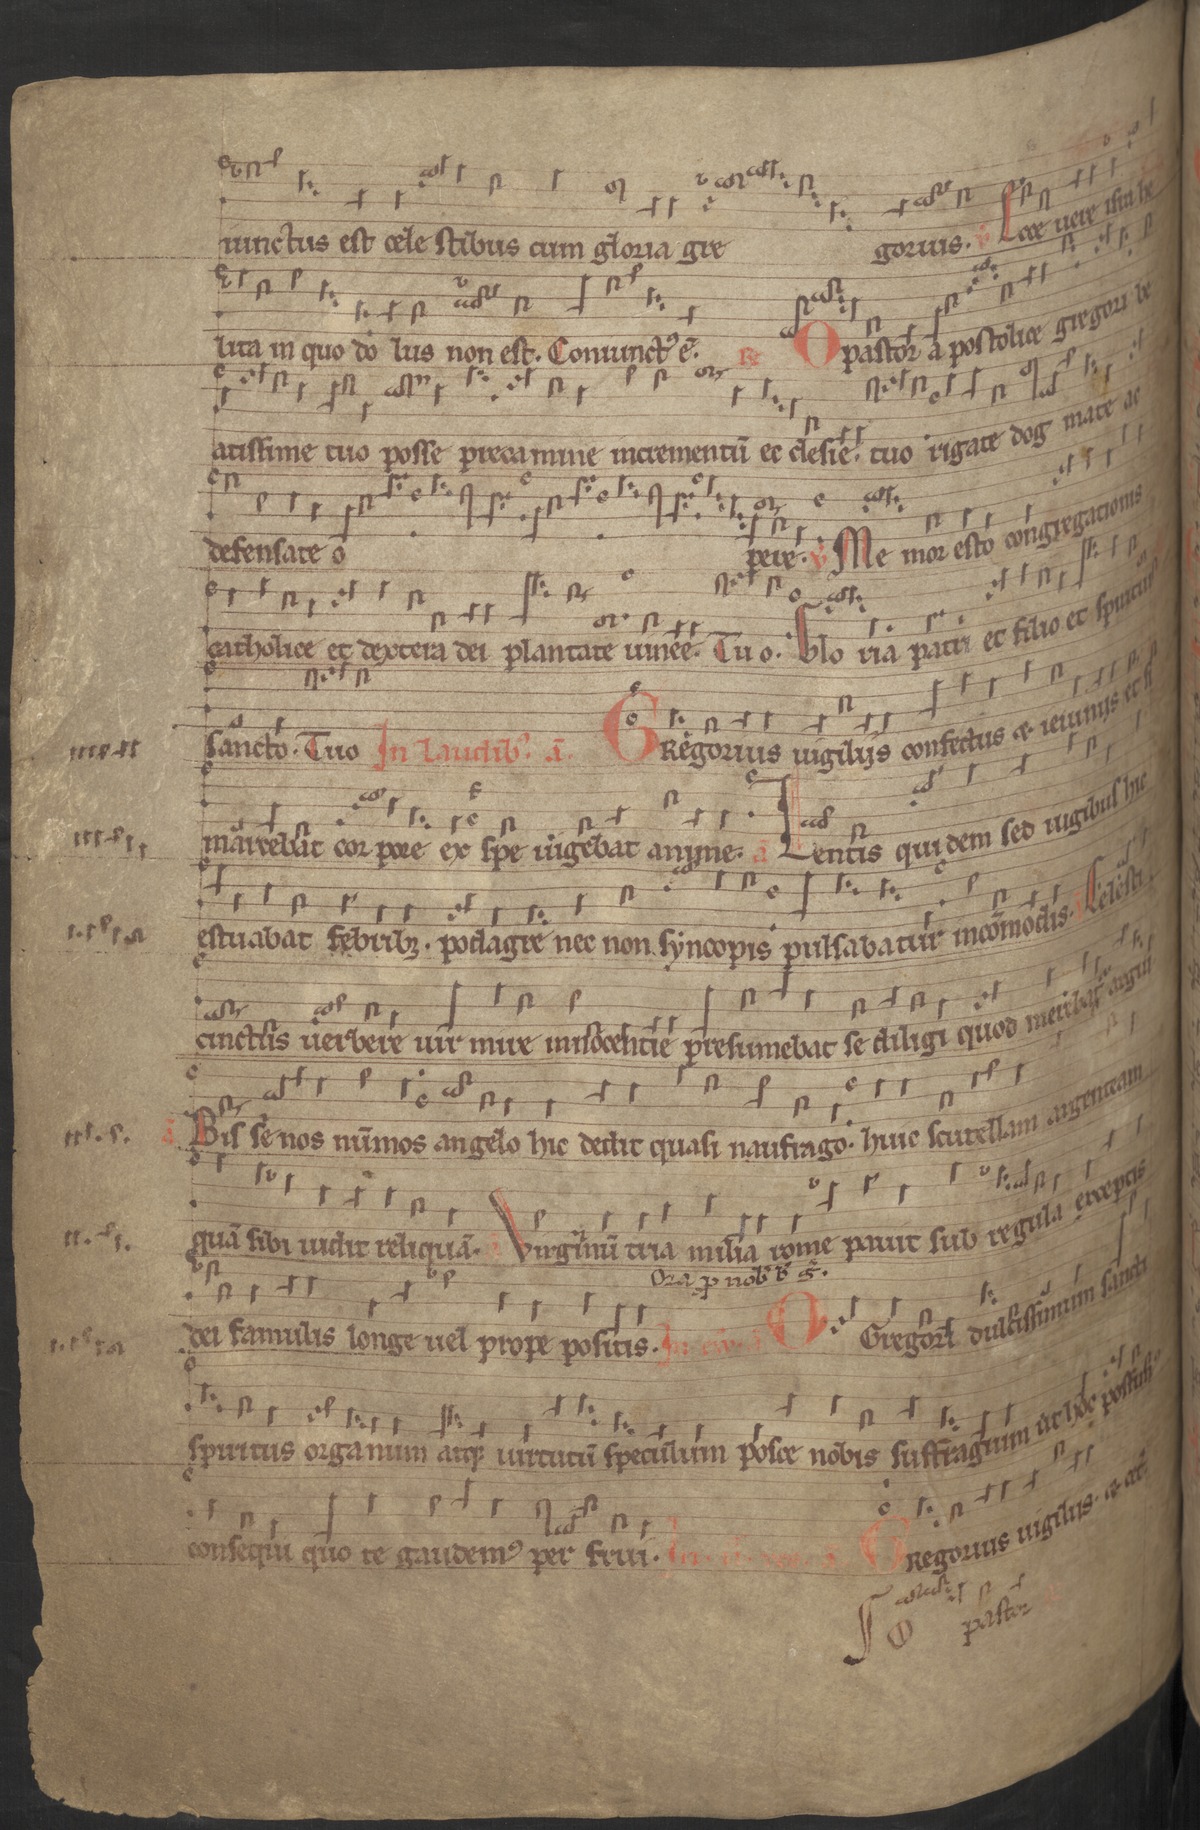 iunctus est cele stibus cum gloria gre gorius. Ecce uere isra he
lita in quo do lus non est. Coniunctꝰ ē. R O pastor a postolice gregori be
atissime tuo posse precamine incrementū ec clesie. tuo rigate dog mate ac
defensate o pere. v Me mor esto congregationis
catholice et dextera dei plantate uinee. Tuo. Glo ria patri et filio et spiritui
sancto. Tuo In laudibꝰ. a. Gregorius uigilijs confectus et ieiunijs et si
marcebat cor pore ex spe uigebat anime. a Lentis quidem sed iugibus hic
estuabat febribꝫ. podagre nec non syncopis pulsabatur incōmodis. Celesti
cinctus uerbere uir mire innocentie presumebat se diligi quod merebat argui
a Bis se nos nūmos angelo hic dedit quasi naufrago. huic scutellam argenteam
quā sibi uidit reliquā. Virginū tria milia rome pauit sub regula exceptis
Ora p nobꝰ b g.
dei famulis longe uel prope positis. In O Gregori dulcissimum sancti
spiritus organum atqꝫ uirtutū speculum posce nobis suffragium ut hoc possimꝰ
consequi quo te gaudemꝰ per frui. Gregorius uigiliis. et
O pastor